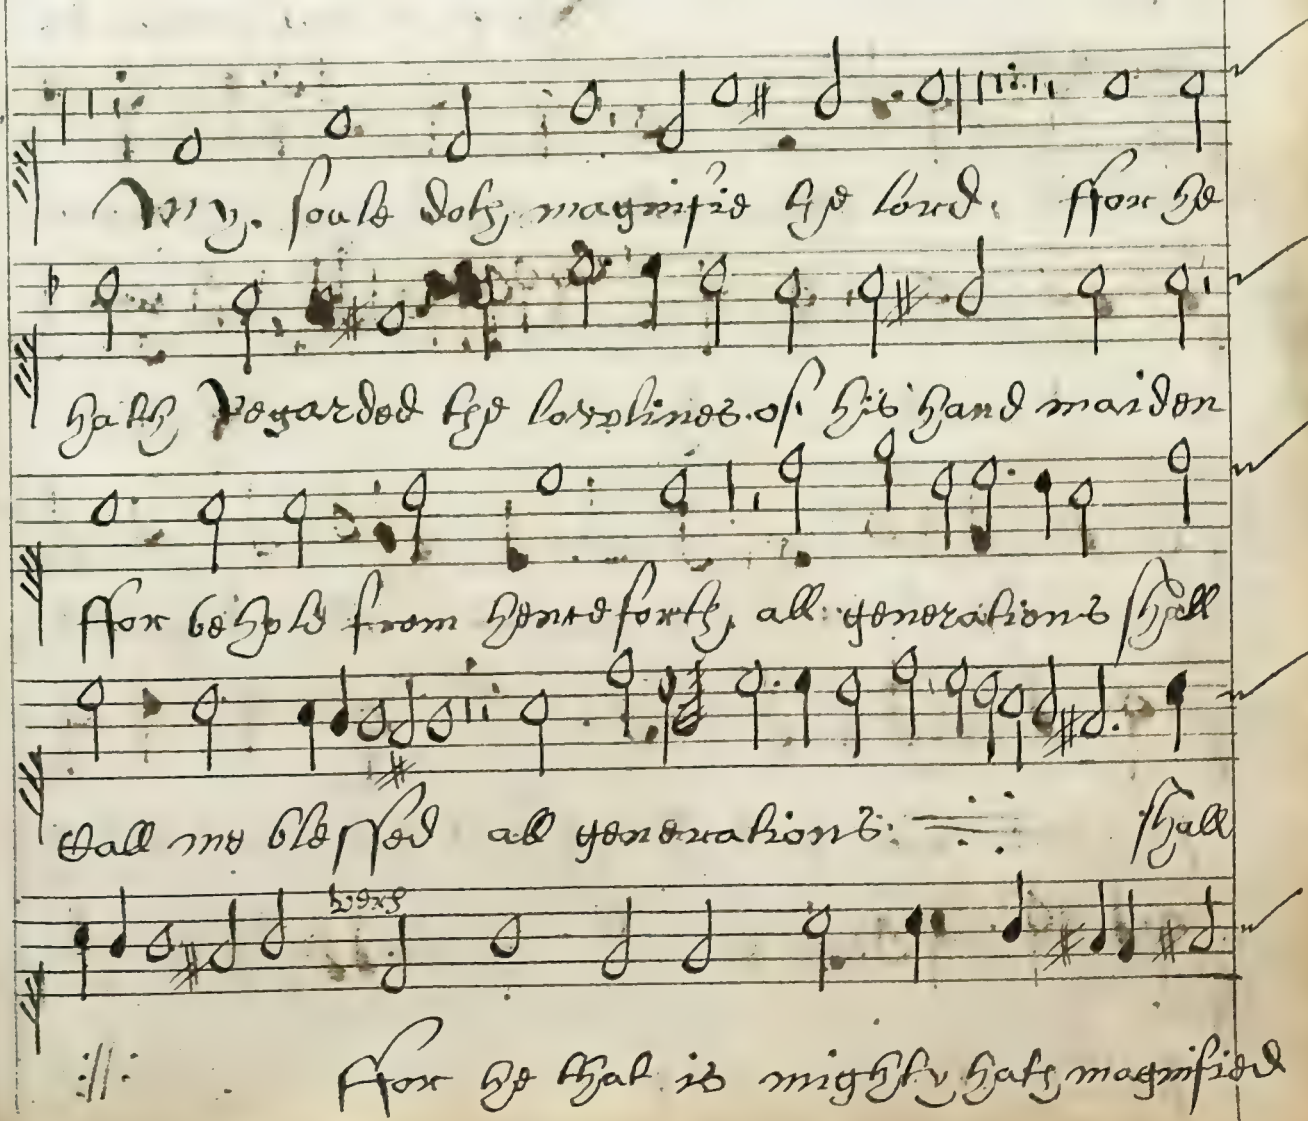 My soule doth magnifie the lord. ffor he
hath Regarded the lowlines of his hand maiden
ffor behold from henceforth, all generations shall
Call me blessed all generations: shall
verse
ffor he that is mighty hath magnified